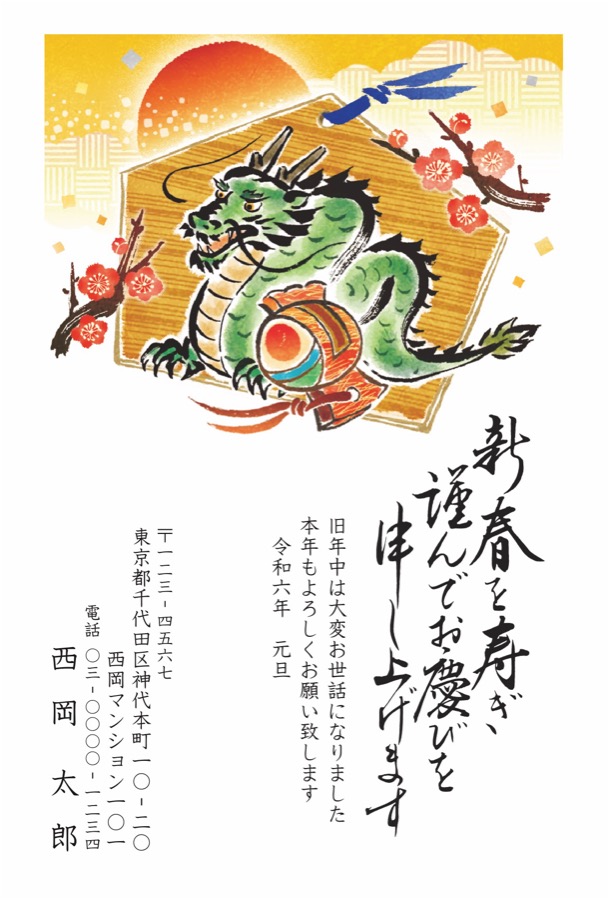 新春を寿ぎ、
謹んでお慶びを
申し上げます
旧年中は大変お世話になりました
本年もよろしくお願い致します
令和六年　元旦
〒一二三-四五六七
東京都千代田区神代本町一〇-二〇
西岡マンション一〇一
電話　〇三-〇〇〇〇-一二三四
西岡太郎